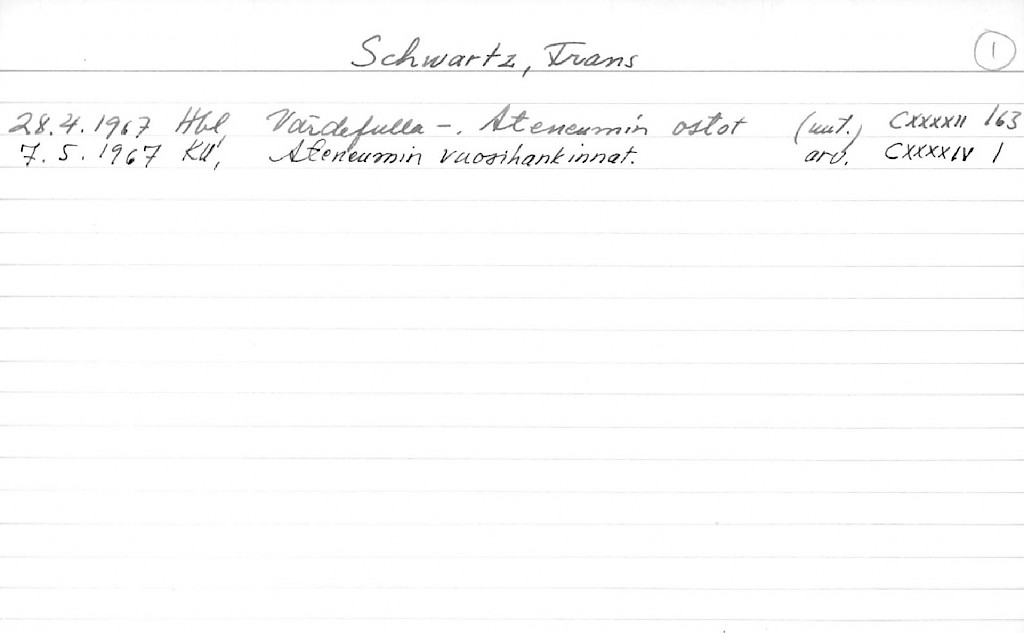 Schwartz, Frans 1
28.4.1967 Hbl, Värdefulla -. Ateneumin ostot (uut.) CXXXXII 163
7.5.1967 KU, Ateneumin vuosihankinnat. arv. CXXXXIV 1